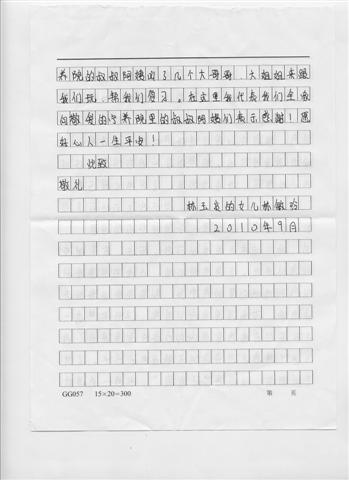 养院的叔叔阿姨出了几个大哥哥、大姐姐来跟
我们玩、帮我们复习。在这里我代表我们全家
向敬爱的疗养院里的叔叔阿姨们表示感谢！愿
好心人一生平安！
此致
敬礼
林玉良的女儿林敏玲
2010年9月
GG057 15×20=300
第 页